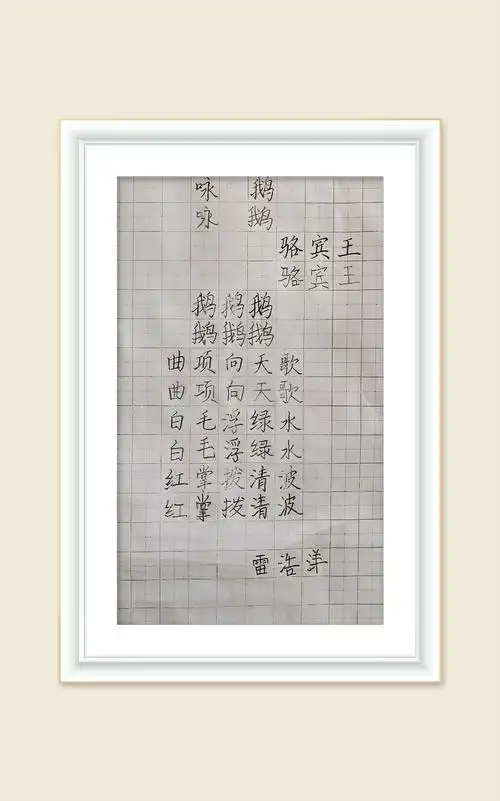 咏 鹅
咏 鹅
骆宾王
骆宾王
鹅鹅鹅
鹅鹅鹅
曲项向天歌
曲项向天歌
白毛浮绿水
白毛浮绿水
红掌拨清波
红掌拨清波
雷浩洋